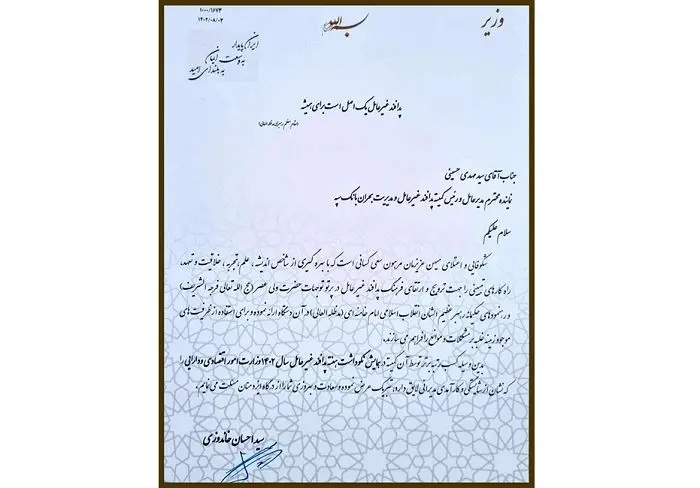 وزیر
بسم الله
۱۰۰۰/۱۶۷۴
۱۴۰۲/۰۸/۰۲
ایران پایدار
به وسعت ایمان
به بلندای امید
پدافند غیرعامل یک اصل است برای همیشه
(مقام معظم رهبری مدظله العالی)
جناب آقای سید مهدی حسینی
نماینده محترم مدیرعامل و رئیس کمیته پدافند غیرعامل و مدیریت بحران بانک سپه
سلام علیکم
شکوفایی و اعتلای میهن عزیزمان مرهون سعی کسانی است که با بهره گیری از شاخص اندیشه، علم، تجربه، خلاقیت و تعهد،
راه کارهای تبیینی را جهت ترویج و ارتقای فرهنگ پدافند غیرعامل در پرتو توجهات حضرت ولی عصر (عج الله تعالی فرجه الشریف)
و رهنمودهای حکیمانه رهبر عظیم الشان انقلاب اسلامی امام خامنه ای (مدظله العالی) در آن دستگاه ارائه نموده و برای استفاده از ظرفیت های
موجود زمینه غلبه بر مشکلات و موانع را فراهم می سازند.
بدین وسیله کسب رتبه برتر توسط آن کمیته در همایش نکوداشت هفته پدافند غیرعامل سال ۱۴۰۲ وزارت امور اقتصادی و دارایی را
که نشان از شایستگی و کارآمدی مدیرانی لایق دارد، تبریک عرض نموده و سعادت و بهروزی شما را از درگاه ایزد منان مسئلت می نمایم.
سید احسان خاندوزی